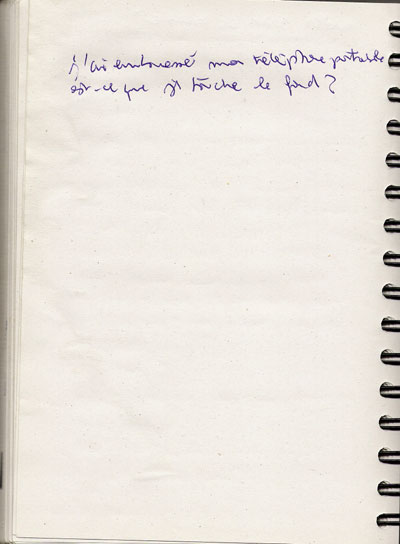 j'ai embrassé mon téléphone portable
est-ce que je touche le fond ?